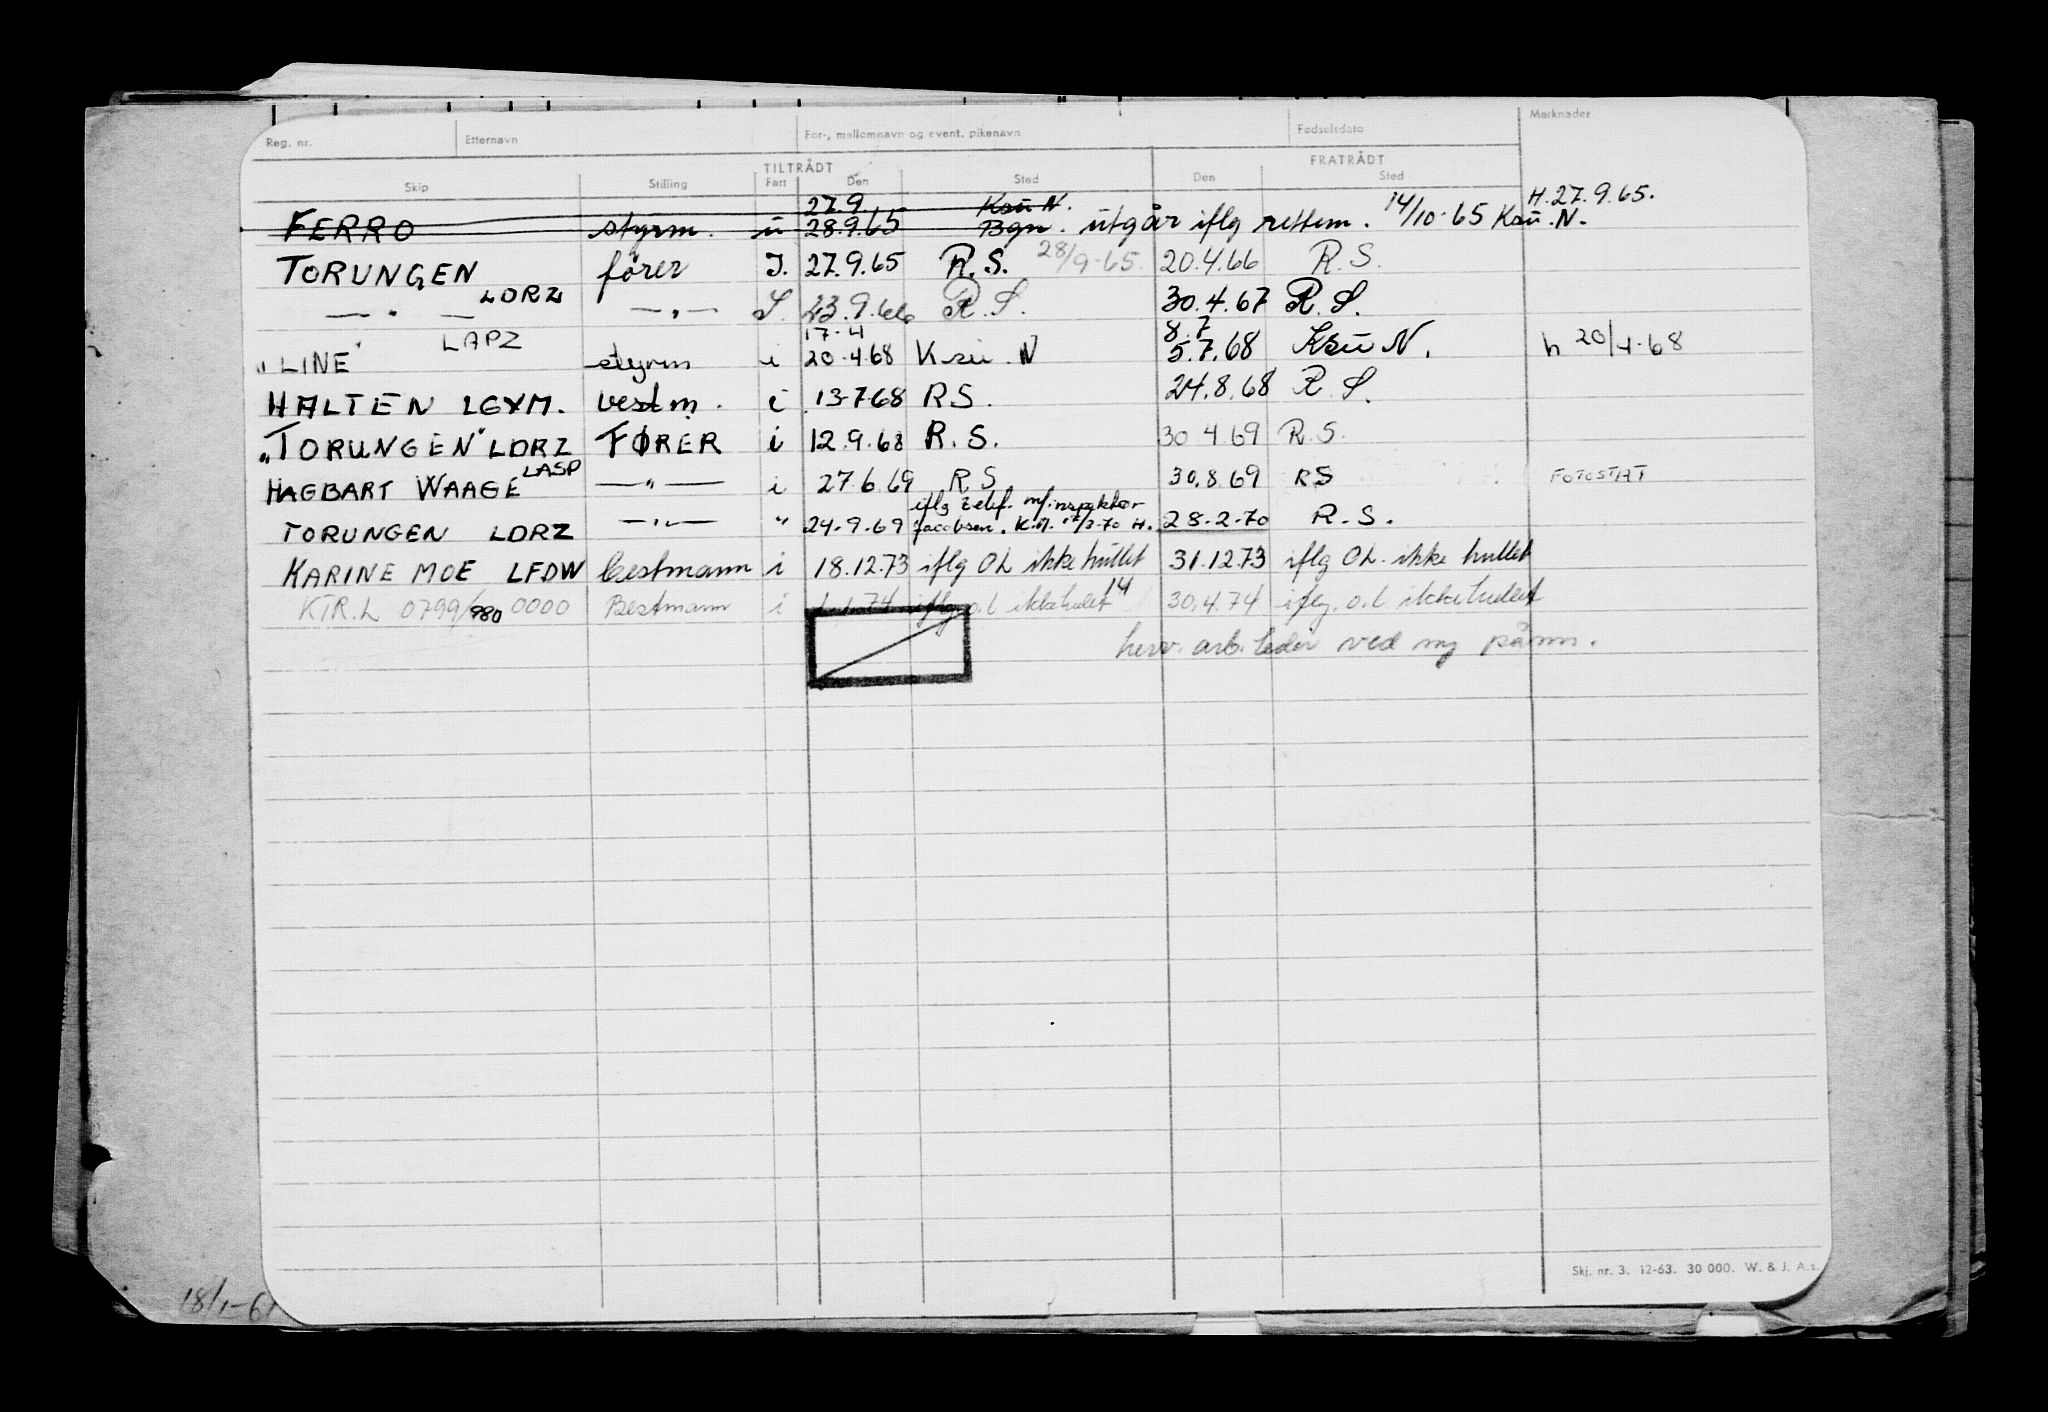 Reg. nr. Etternavn For-, mellomnavn og event. pikenavn Fødselsdato Merknader
TILTRÅDT FRATRÅDT
Skip Stilling Fart Den Sted Den Sted
27.9. Ksu N. H. 27.9.65.
FERRO styrm. u 28.9.65 Bgn. utgår iflg rettem. 14/10-65 Ksu. N.
TORUNGEN fører I. 27.9.65 R.S. 28/9-65. 20.4.66 R.S.
LDRZ
— " — — " — I. 23.9.66 R.S. 30.4.67 R.S.
LAPZ 17-4 8.7
"LINE" styrm i 20-4.68 Ksu. N 5.7.68 Ksu N. h 20/4-68
HALTEN LGYM. bestm. i 13-7-68 RS. 24.8.68 R.S.
"TORUNGEN" LDRZ FØRER i 12.9.68 R.S. 30.4.69 R.S.
HAGBART WAAGE LASP — " — i 27.6.69 RS 30.8.69 RS FOTOSTAT
iflg telef. m/inspektør
TORUNGEN LDRZ — " — " 24-9.69 Jacobsen. H. 28-2-70 R.S.
KARINE MOE LFDW bestmann i 18.12.73 iflg OL ikke hullet 31.12.73 iflg OL. ikke hullet
KTR.L 0799/980 0000 Bestmann i 1.1.74 iflg. o.l ikke hulet 14 30.4.74 iflg. o.l ikke hullet
herv. arb. leder ved ny påmn.
18/1-61
Skj. nr. 3. 12-63. 30 000. W. & J. A.s.